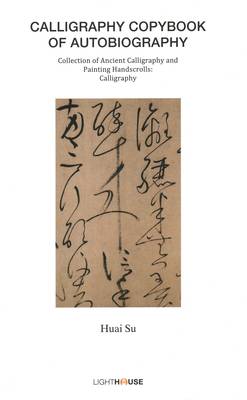 CALLIGRAPHY COPYBOOK
OF AUTOBIOGRAPHY
Collection of Ancient Calligraphy and
Painting Handscrolls:
Calligraphy
半無墨
醉来信手
兩三行醒
Huai Su
LIGHTHOUSE